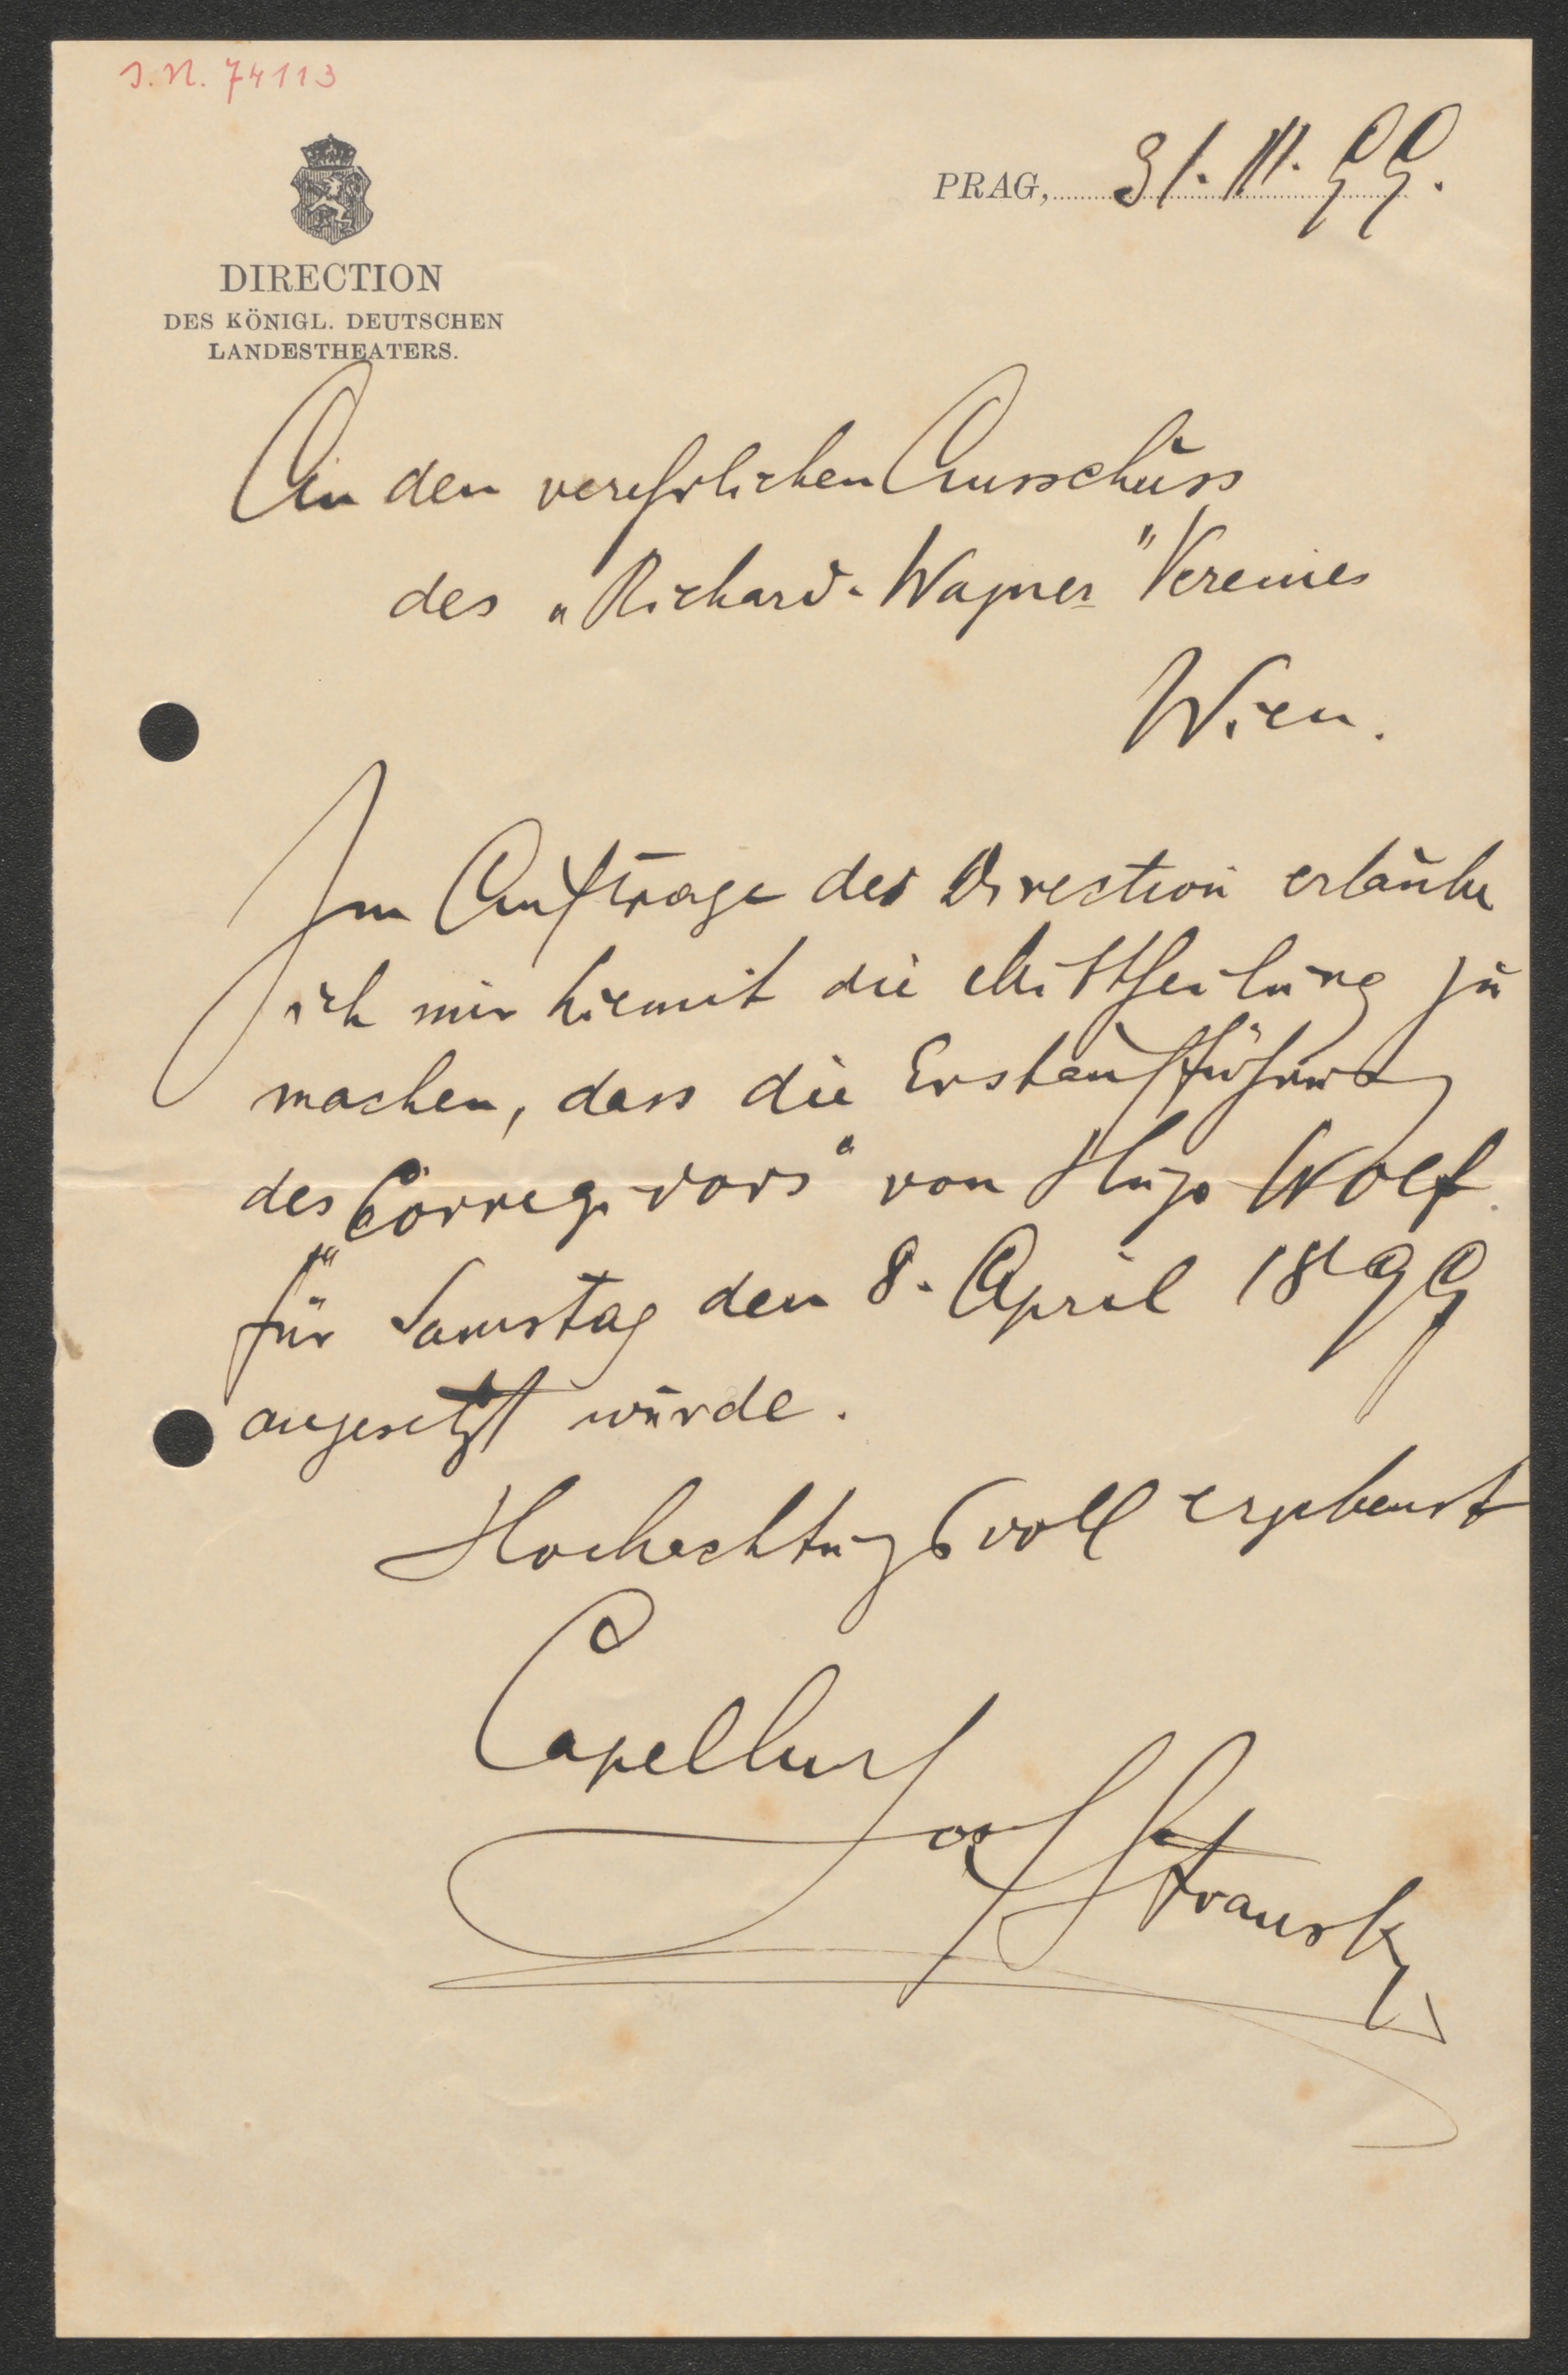 I.N. 74113
PRAG, 31. III. 99.
DIRECTION
DES KÖNIGL. DEUTSCHEN
LANDESTHEATERS.
An den verehrlichen Ausschuss
des „Richard-Wagner" Vereines
Wien.
Im Auftrage der Direction erlaube
ich mir hiemit die Mittheilung zu
machen, dass die Erstaufführung
des „Corregidors" von Hugo Wolf
für Samstag den 8. April 1899
angesetzt wurde.
Hochachtungsvoll ergebenst
Capellm
Josef Stransky